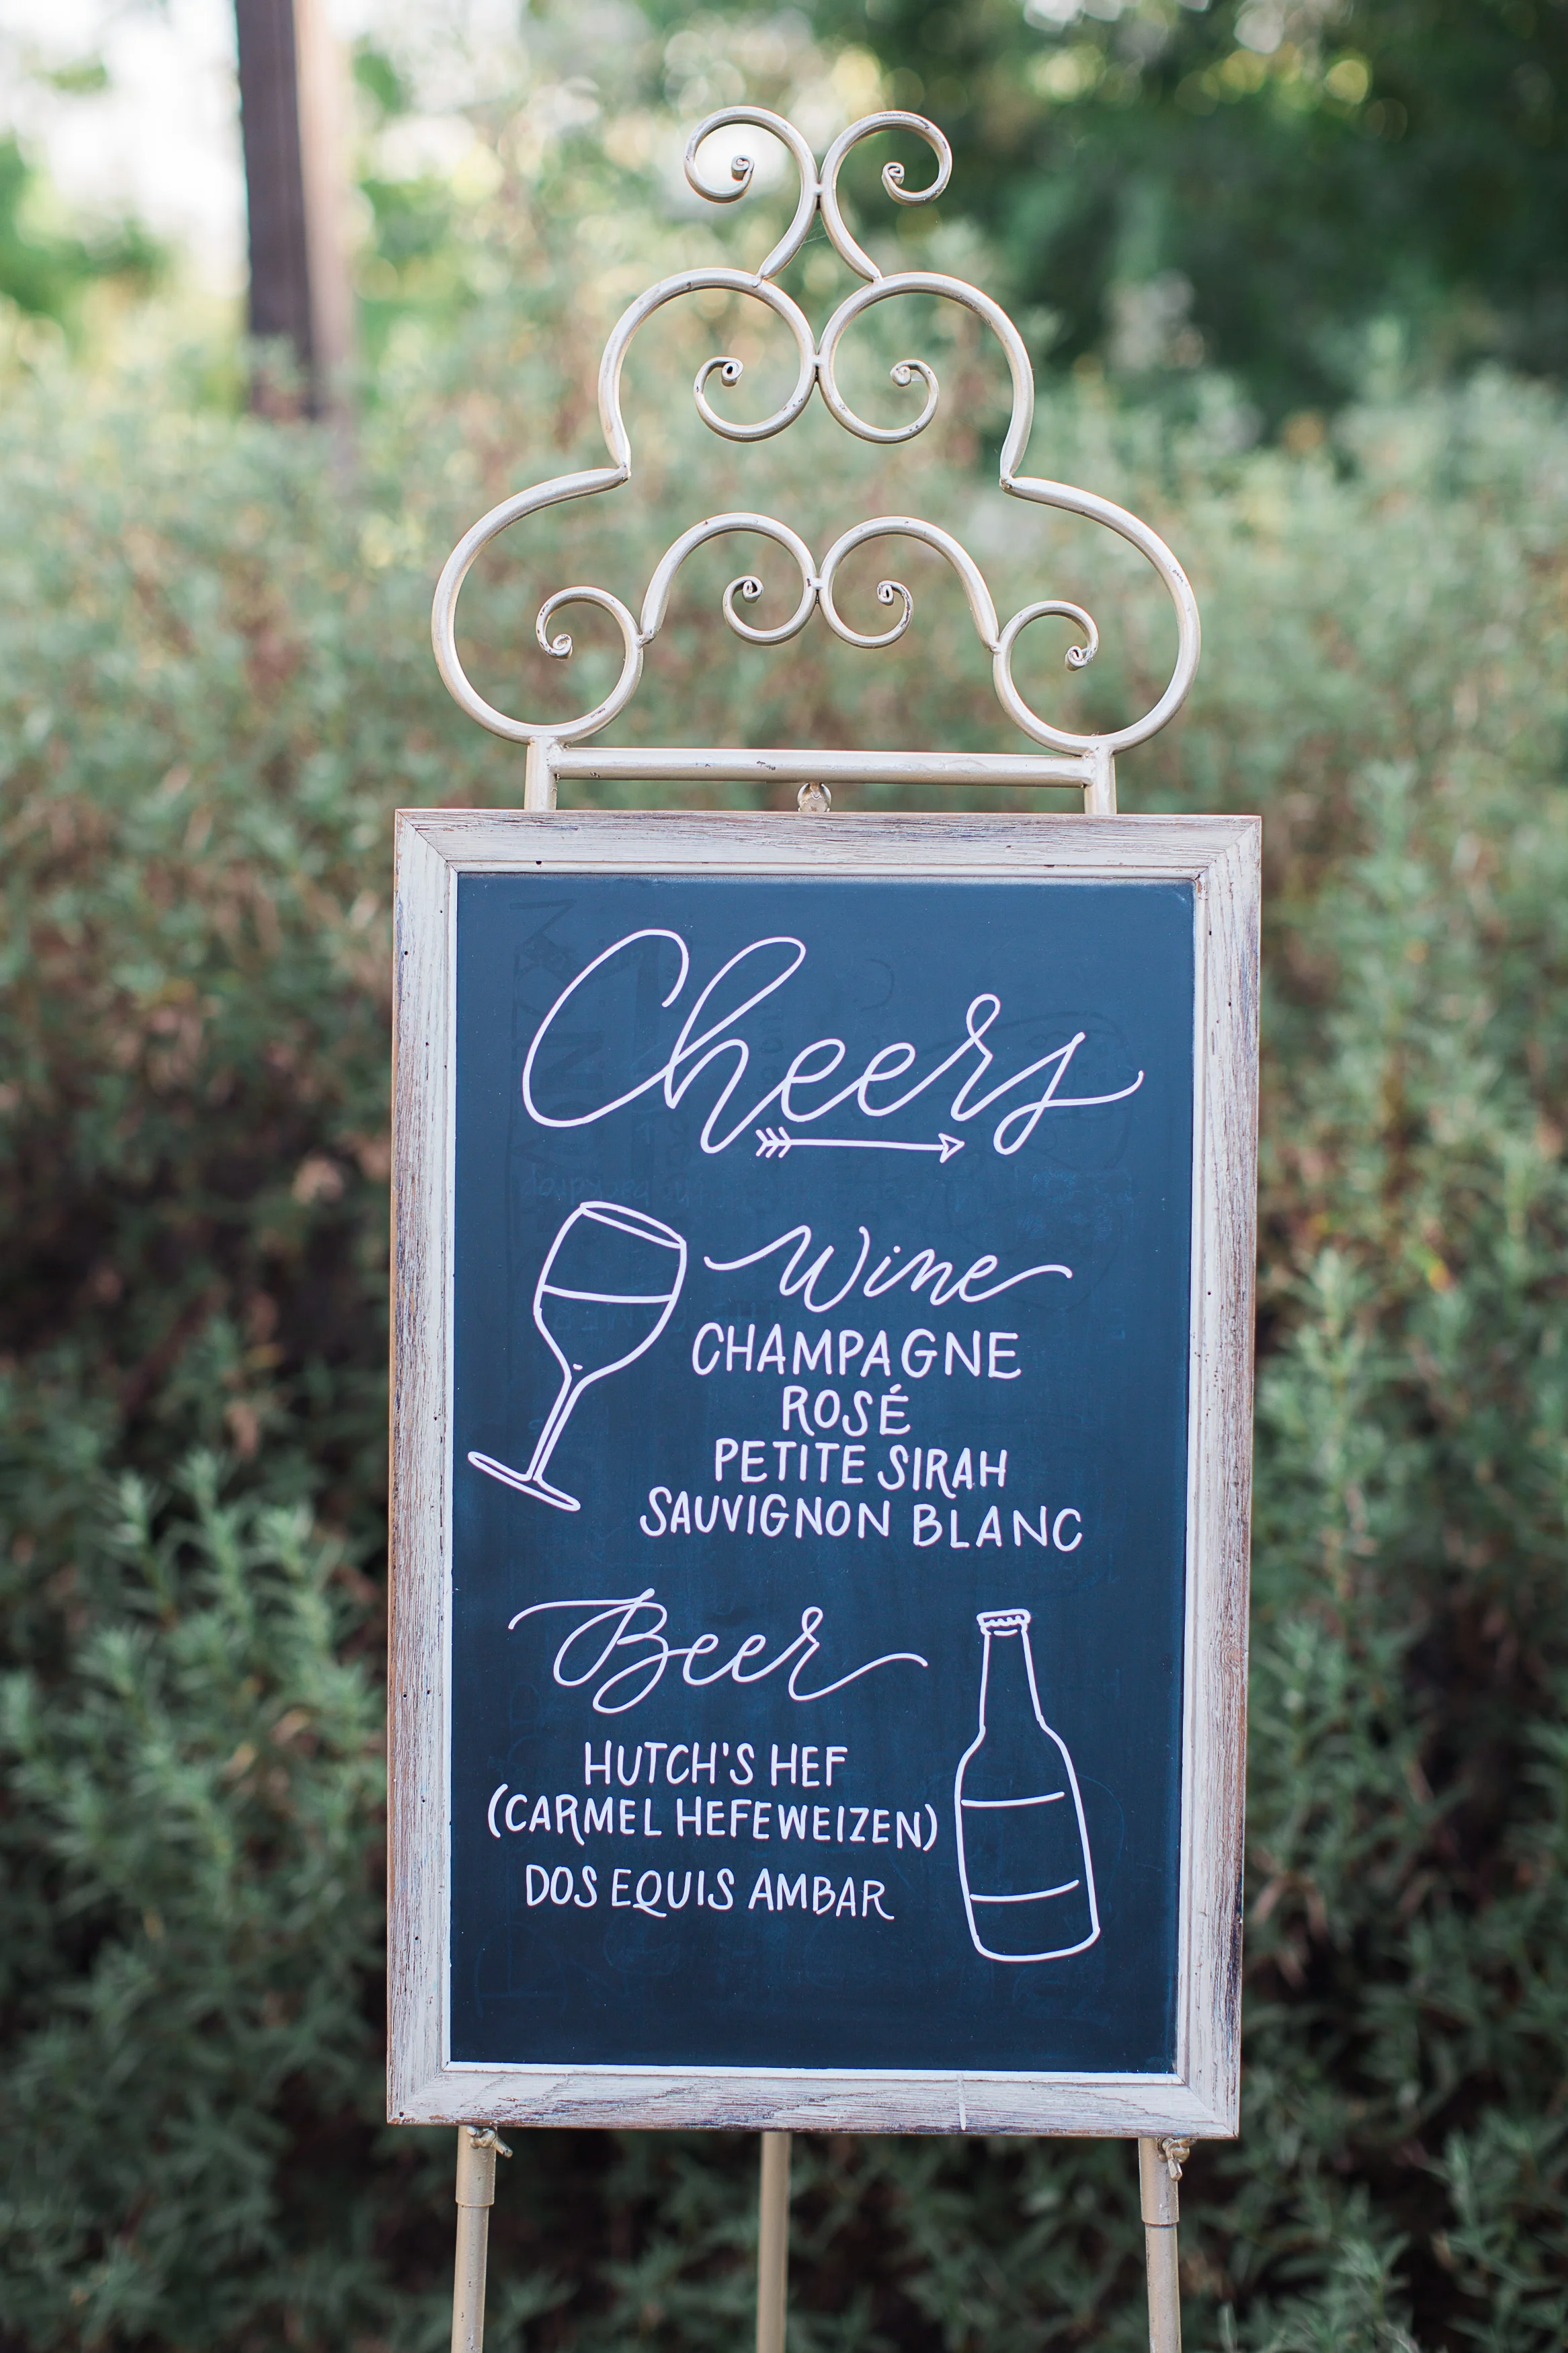 Cheers
Wine
CHAMPAGNE
ROSÉ
PETITE SIRAH
SAUVIGNON BLANC
Beer
HUTCH'S HEF
(CARMEL HEFEWEIZEN)
DOS EQUIS AMBAR